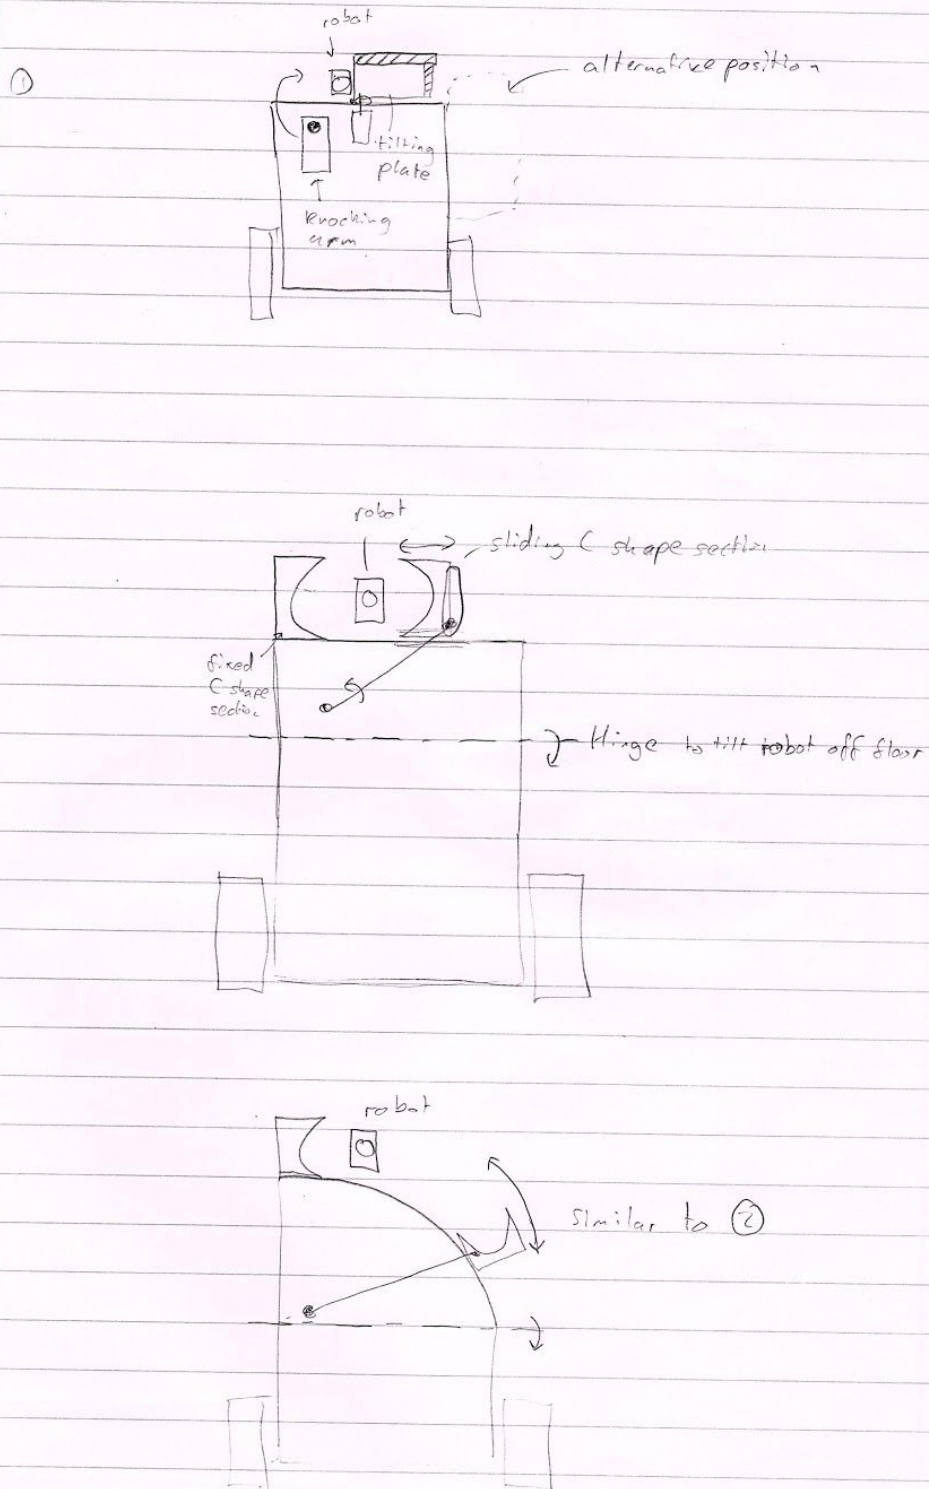 robot
①
alternative position
tilting
plate
knocking
arm
robot
sliding C shape section
fixed
C shape
section
Hinge to tilt robot off floor
robot
similar to ②